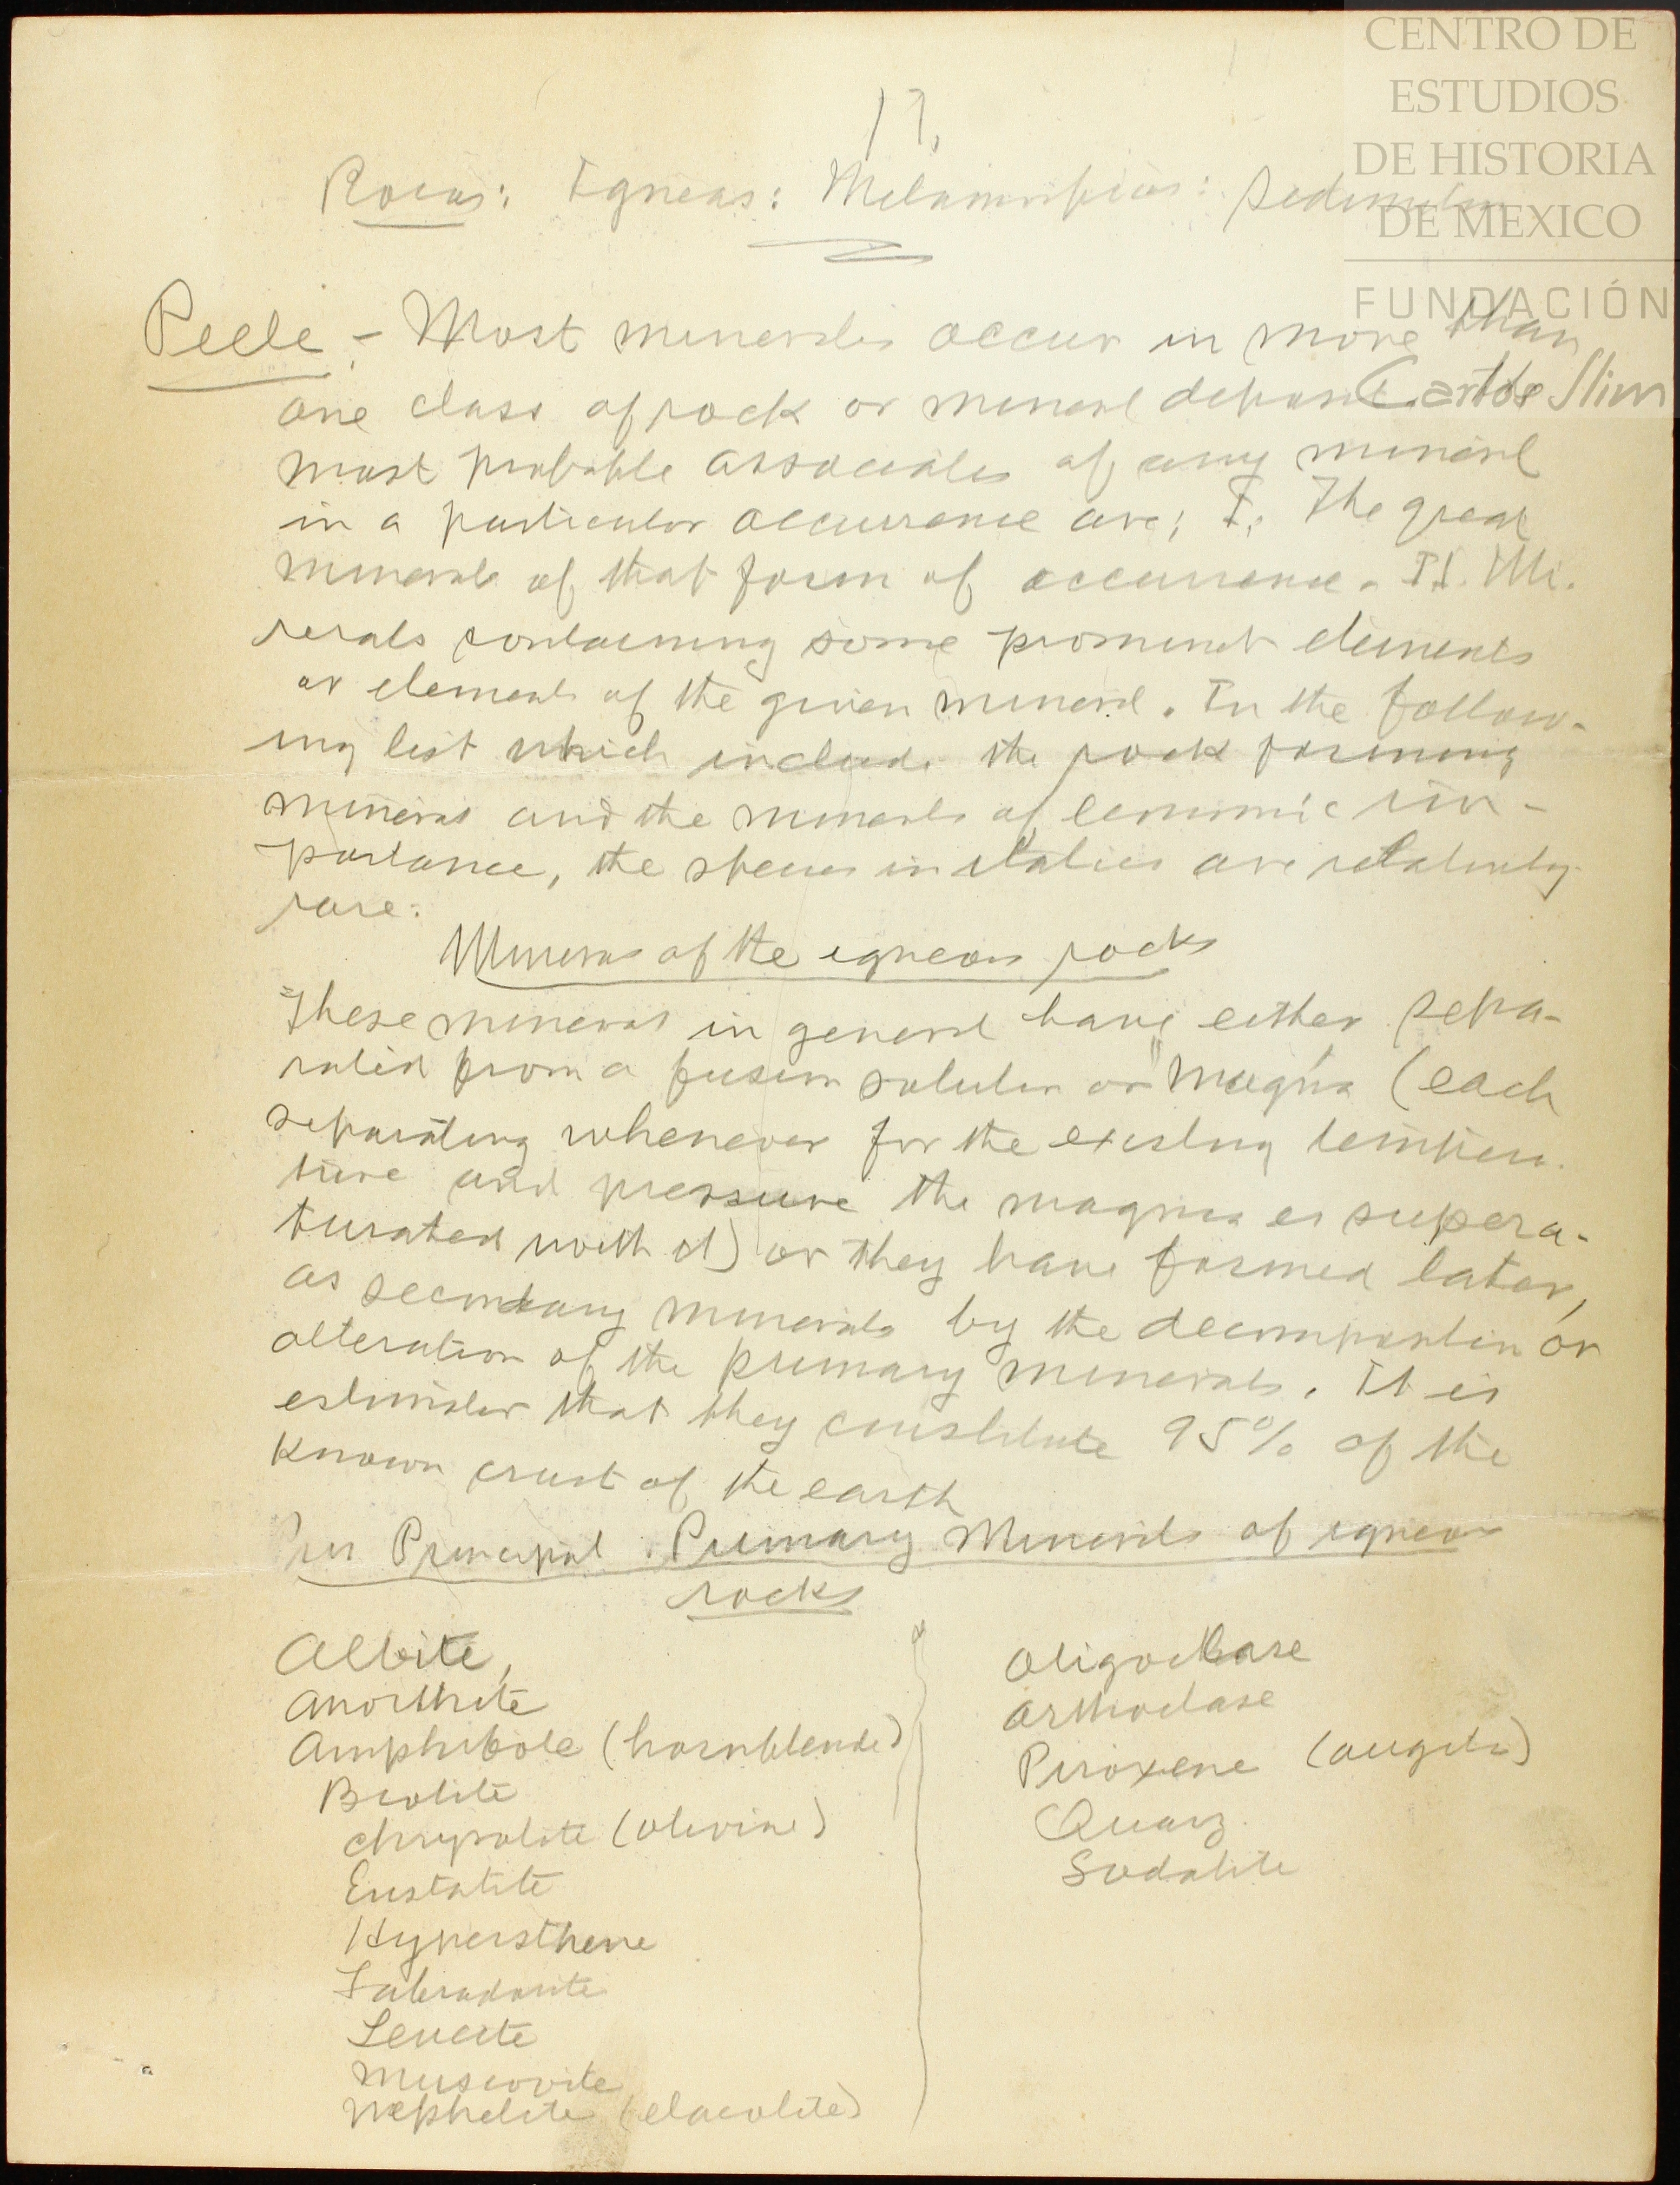 CENTRO DE
ESTUDIOS
DE HISTORIA
DE MEXICO
FUNDACIÓN
Carlos Slim
17.
Rocas: Igneas: Metamorficas:
Peele - Most minerals occur in more than
one class of rock or mineral deposit. The
most probable associates of any mineral
in a particular occurrence are; I. The great
minerals of that form of occurrence. II. Mi.
nerals containing some prominet elements
or elements of the given mineral. In the follow-
ing list which include the rock forming
minerals and the minerals of economic im-
portance, the species in italics are relatively
rare.
Minerals of the igneous rocks
These minerals in general have either sepa-
rated from a fusion solution or "magma (each
separating whenever for the existing tempera-
ture and pressure the magma is supersa-
turated with it) or they have formed later,
as secondary minerals by the decomposition or
alteration of the primary minerals. It is
estimated that they constitute 95% of the
known crust of the earth
Principal Primary Minerals of igneous
rocks
Albite,
Anorthite
Amphibole (hornblende)
Biotite
Chrysolite (olivine)
Enstatite
Hypersthene
Labradorite
Leucite
Muscovite
Nephelite (elaeolite)
Oligoclase
Orthoclase
Piroxene (augite)
Quarz.
Sodalite